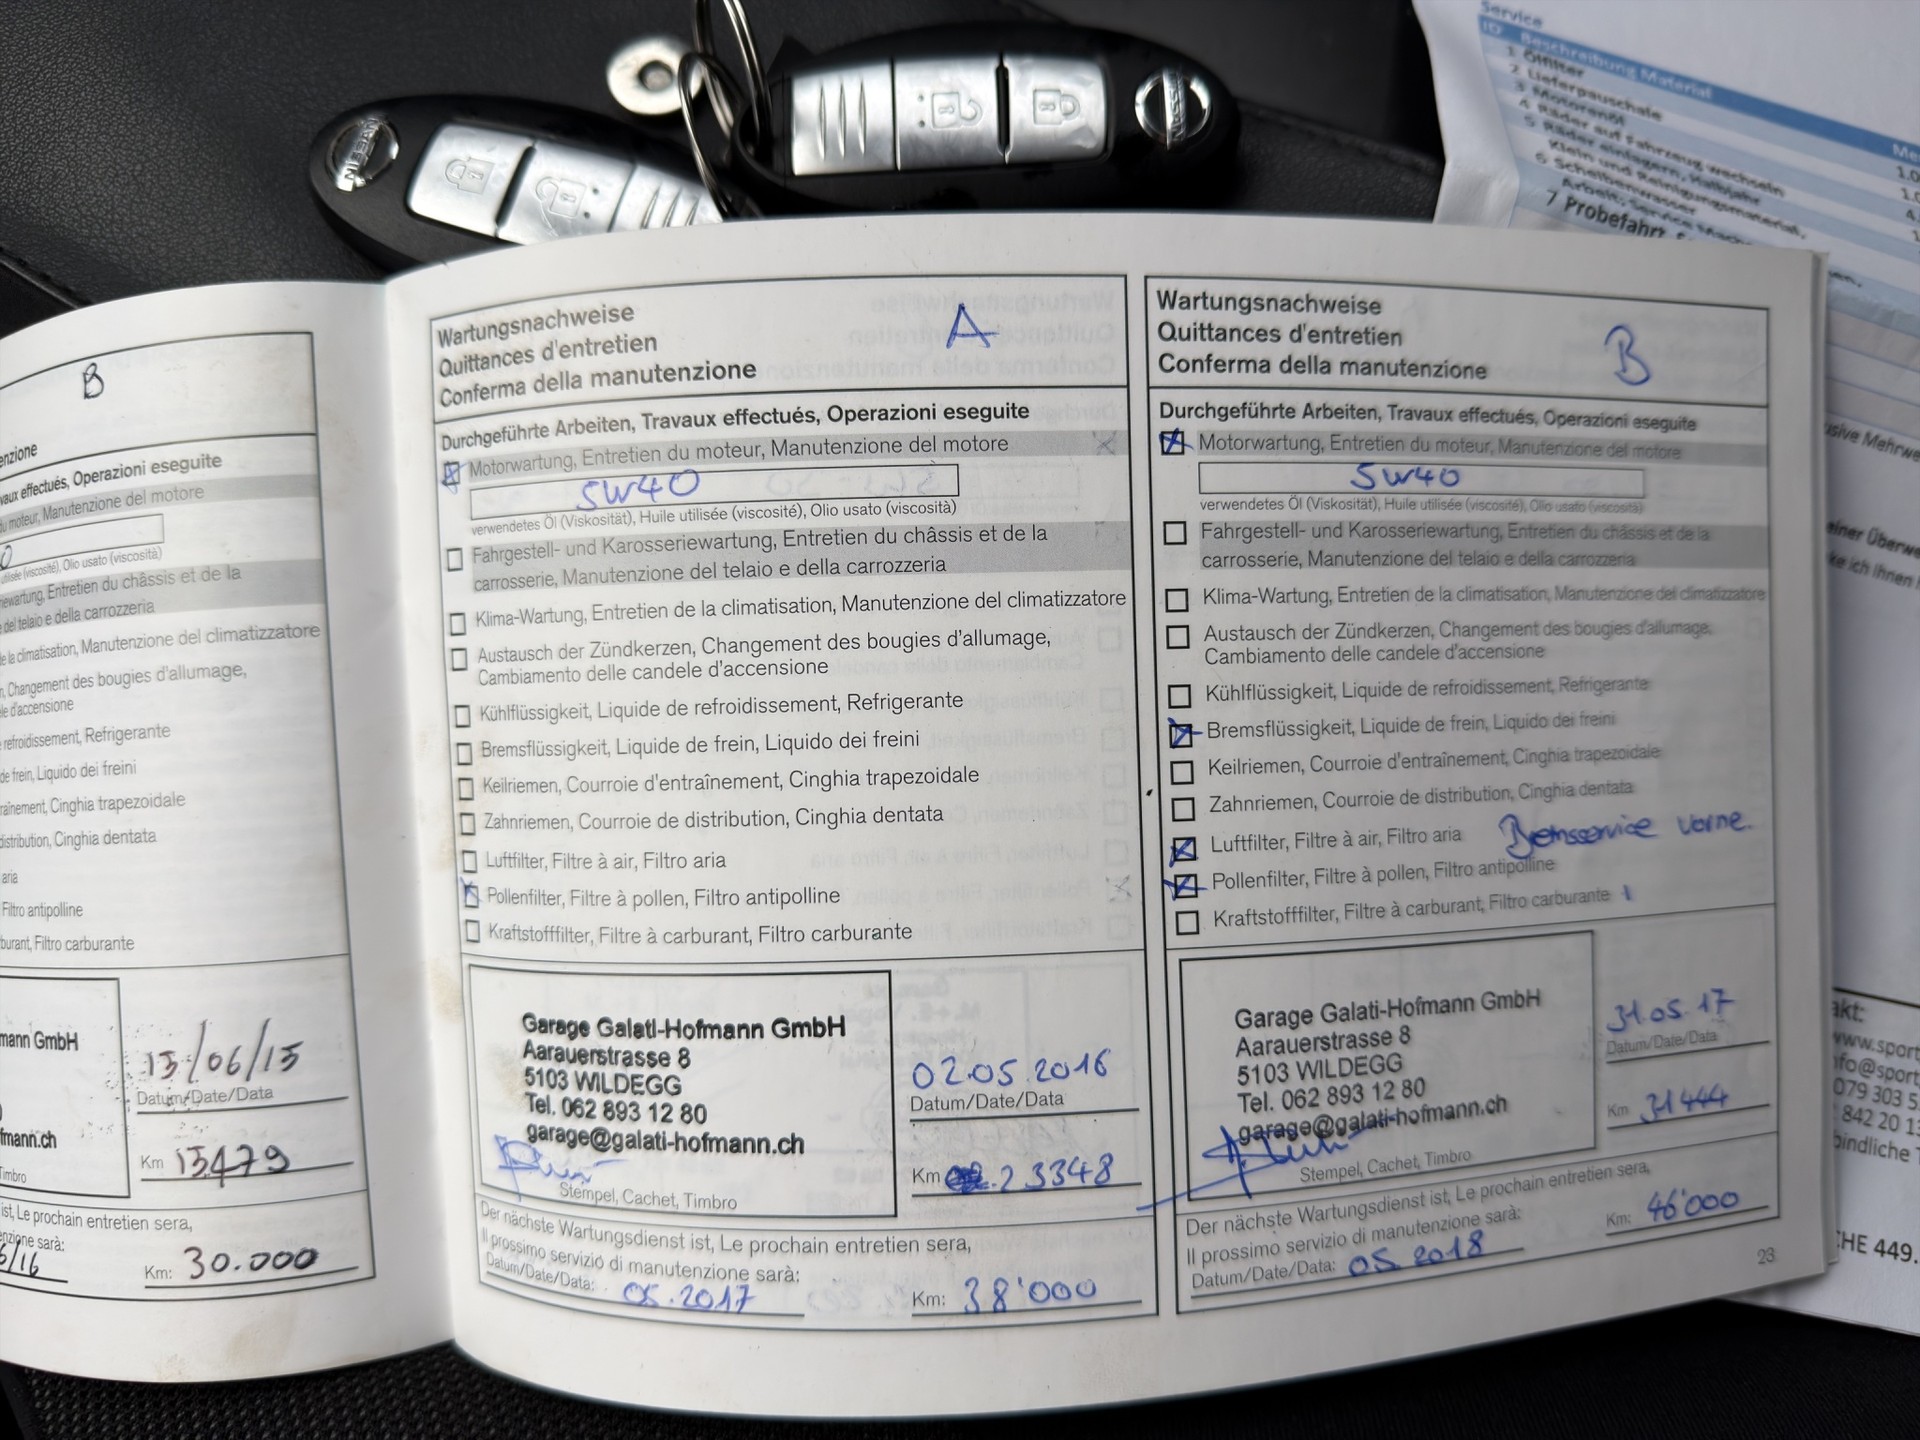 NISSAN
NISSAN
Service
ID Beschreibung Material
1 Ölfilter
2 Lieferpauschale
3 Motorenöl
4 Räder auf Fahrzeug wechseln
5 Räder einlagern, Halbjahr
Klein und Reinigungsmaterial,
6 Scheibenwasser
Arbeit; Service
7 Probefahrt
B
enzione
vaux effectués, Operazioni eseguite
du moteur, Manutenzione del motore
utilisée (viscosité), Olio usato (viscosità)
ewartung, Entretien du châssis et de la
del telaio e della carrozzeria
de la climatisation, Manutenzione del climatizzatore
n, Changement des bougies d'allumage,
le d'accensione
refroidissement, Refrigerante
de frein, Liquido dei freini
raînement, Cinghia trapezoidale
distribution, Cinghia dentata
aria
Filtro antipolline
burant, Filtro carburante
mann GmbH
fmann.ch
Timbro
13/06/15
Datum/Date/Data
Km 15479
ist, Le prochain entretien sera,
enzione sarà:
6/16
Km: 30.000
Wartungsnachweise
Quittances d'entretien
Conferma della manutenzione
A
Durchgeführte Arbeiten, Travaux effectués, Operazioni eseguite
Motorwartung, Entretien du moteur, Manutenzione del motore
5W40
verwendetes Öl (Viskosität), Huile utilisée (viscosité), Olio usato (viscosità)
Fahrgestell- und Karosseriewartung, Entretien du châssis et de la
carrosserie, Manutenzione del telaio e della carrozzeria
Klima-Wartung, Entretien de la climatisation, Manutenzione del climatizzatore
Austausch der Zündkerzen, Changement des bougies d'allumage,
Cambiamento delle candele d'accensione
Kühlflüssigkeit, Liquide de refroidissement, Refrigerante
Bremsflüssigkeit, Liquide de frein, Liquido dei freini
Keilriemen, Courroie d'entraînement, Cinghia trapezoidale
Zahnriemen, Courroie de distribution, Cinghia dentata
Luftfilter, Filtre à air, Filtro aria
Pollenfilter, Filtre à pollen, Filtro antipolline
Kraftstofffilter, Filtre à carburant, Filtro carburante
Garage Galati-Hofmann GmbH
Aarauerstrasse 8
5103 WILDEGG
Tel. 062 893 12 80
garage@galati-hofmann.ch
Stempel, Cachet, Timbro
02.05.2016
Datum/Date/Data
Km 23348
Der nächste Wartungsdienst ist, Le prochain entretien sera,
Il prossimo servizio di manutenzione sarà:
Datum/Date/Data: 05.2017
Km: 38'000
Wartungsnachweise
Quittances d'entretien
Conferma della manutenzione
B
Durchgeführte Arbeiten, Travaux effectués, Operazioni eseguite
Motorwartung, Entretien du moteur, Manutenzione del motore
5W40
verwendetes Öl (Viskosität), Huile utilisée (viscosité), Olio usato (viscosità)
Fahrgestell- und Karosseriewartung, Entretien du châssis et de la
carrosserie, Manutenzione del telaio e della carrozzeria
Klima-Wartung, Entretien de la climatisation, Manutenzione del climatizzatore
Austausch der Zündkerzen, Changement des bougies d'allumage,
Cambiamento delle candele d'accensione
Kühlflüssigkeit, Liquide de refroidissement, Refrigerante
Bremsflüssigkeit, Liquide de frein, Liquido dei freini
Keilriemen, Courroie d'entraînement, Cinghia trapezoidale
Zahnriemen, Courroie de distribution, Cinghia dentata
Luftfilter, Filtre à air, Filtro aria
Bremsservice vorne.
Pollenfilter, Filtre à pollen, Filtro antipolline
Kraftstofffilter, Filtre à carburant, Filtro carburante
Garage Galati-Hofmann GmbH
Aarauerstrasse 8
5103 WILDEGG
Tel. 062 893 12 80
garage@galati-hofmann.ch
Stempel, Cachet, Timbro
31.05.17
Datum/Date/Data
Km 31444
Der nächste Wartungsdienst ist, Le prochain entretien sera,
Il prossimo servizio di manutenzione sarà:
Datum/Date/Data: 05.2018
Km: 46'000
23
usive Mehrwe
einer Überwe
ke ich Ihnen
akt:
www.sport
nfo@sport
079 303 5
842 20 1
bindliche
CHE 449.